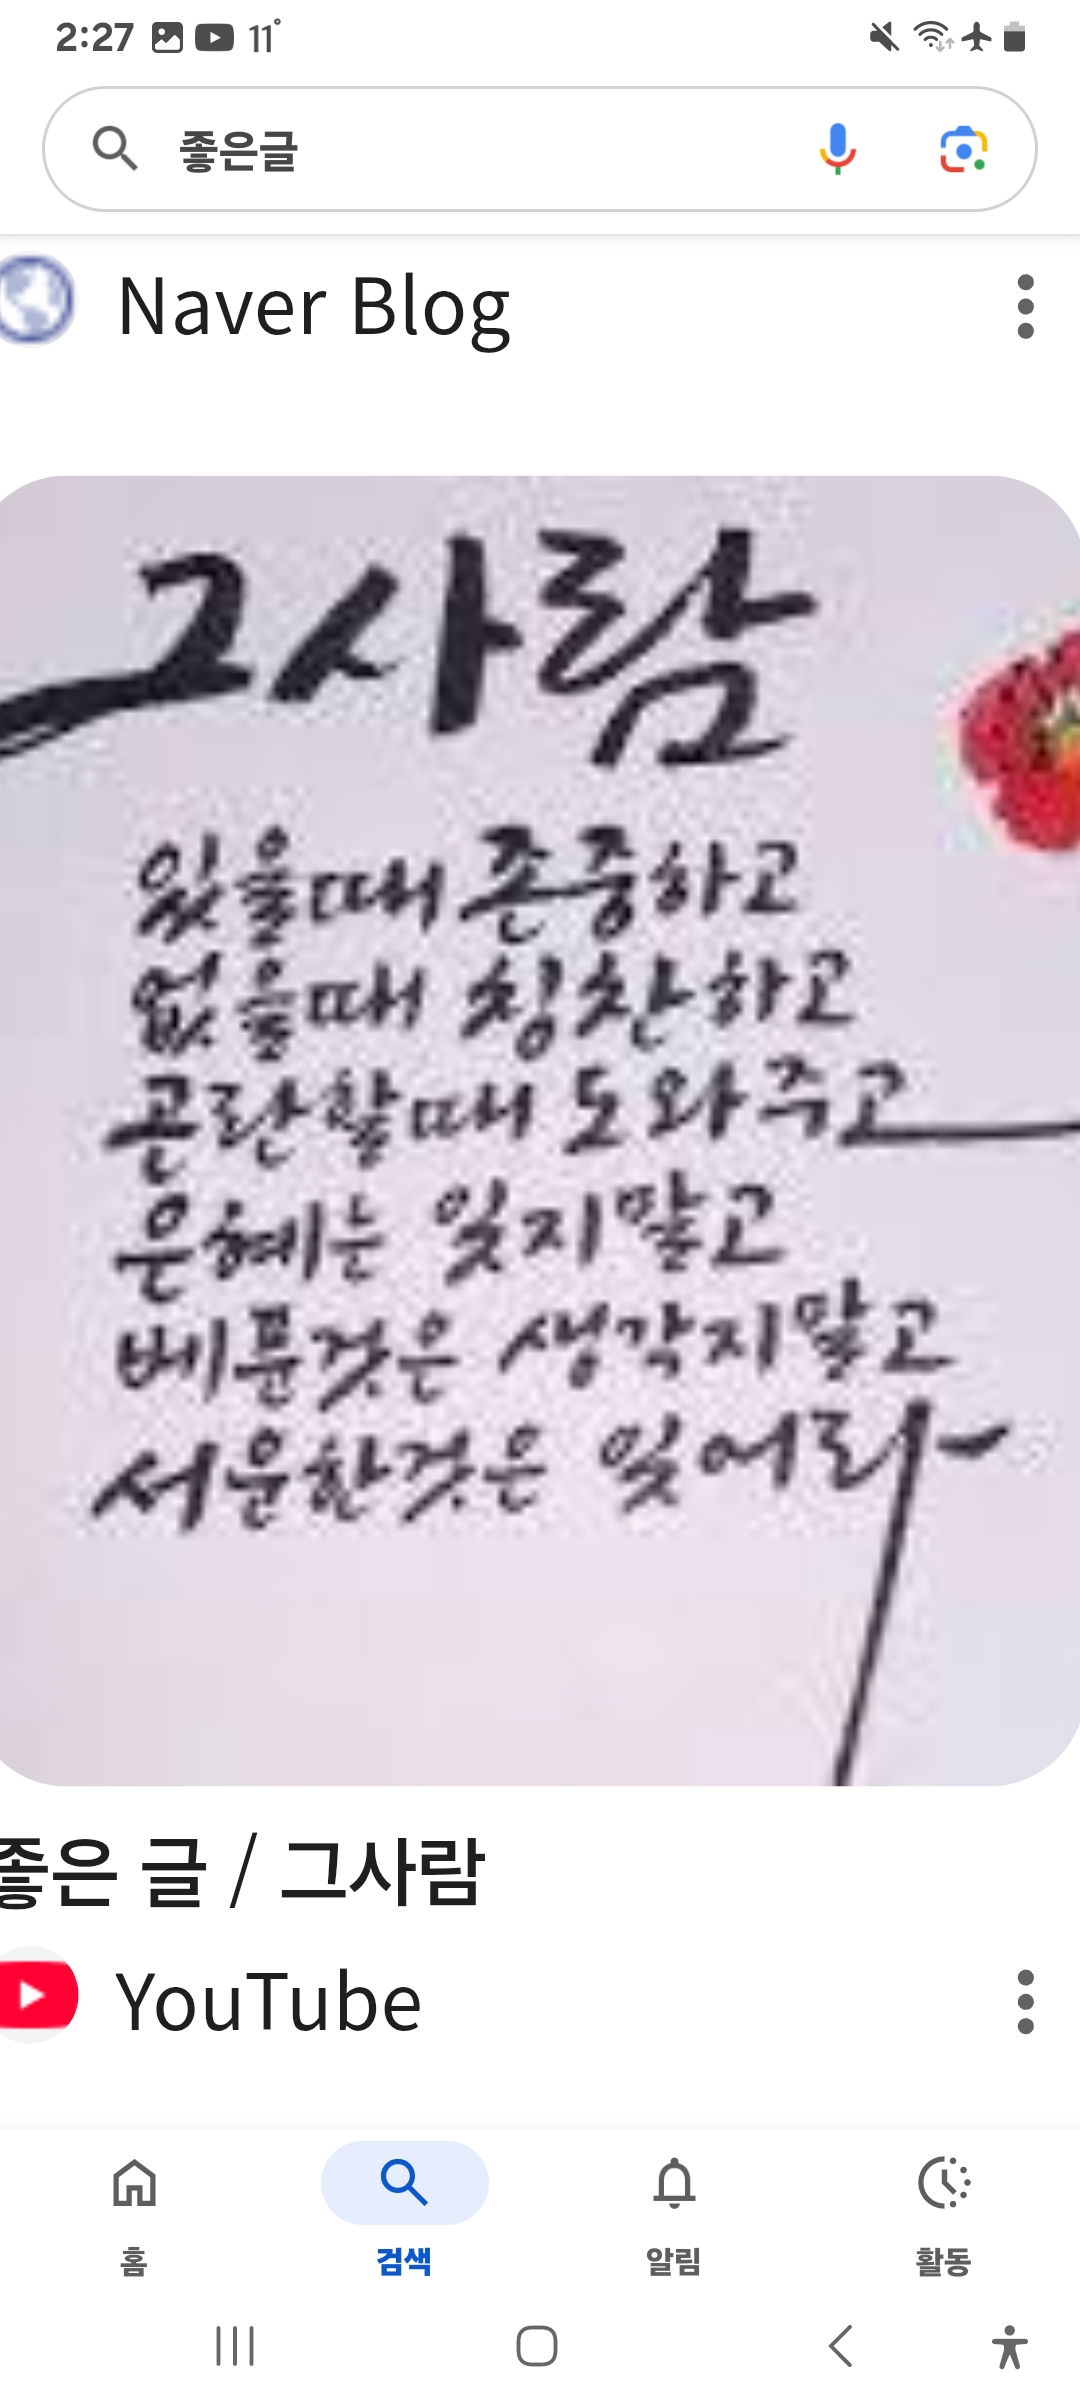 2:27 11°
좋은글
Naver Blog
그사람
있을때 존중하고
없을때 칭찬하고
곤란할때 도와주고
은혜는 잊지말고
베푼것은 생각지말고
서운한것은 잊어라
좋은 글 / 그사람
YouTube
홈 검색 알림 활동